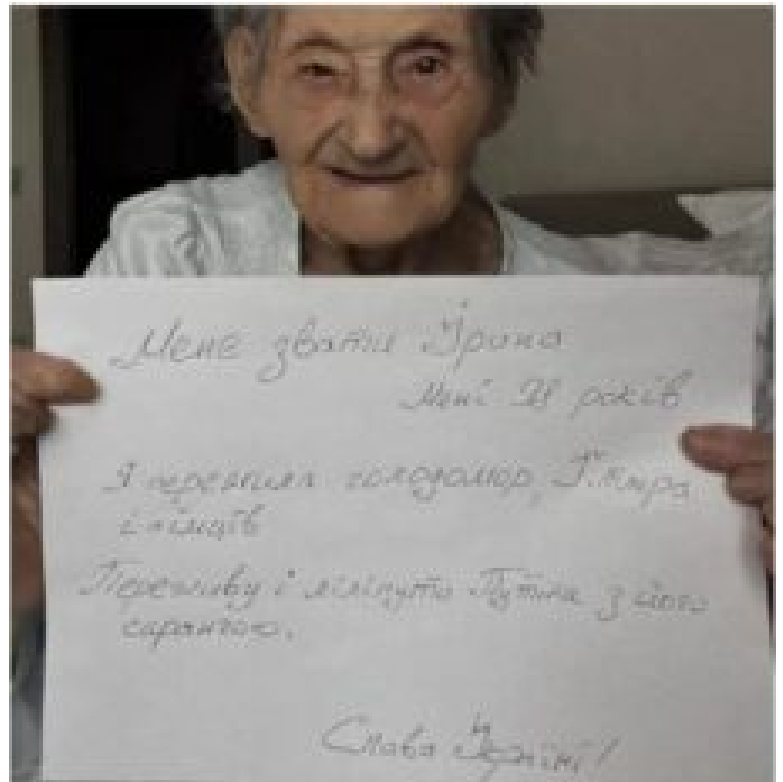 Мене звати Ірина
Мені років
Я пережила голодомор,
і німців
Переживу і ліліпута Путіна з його
саранчою.
Слава Україні!